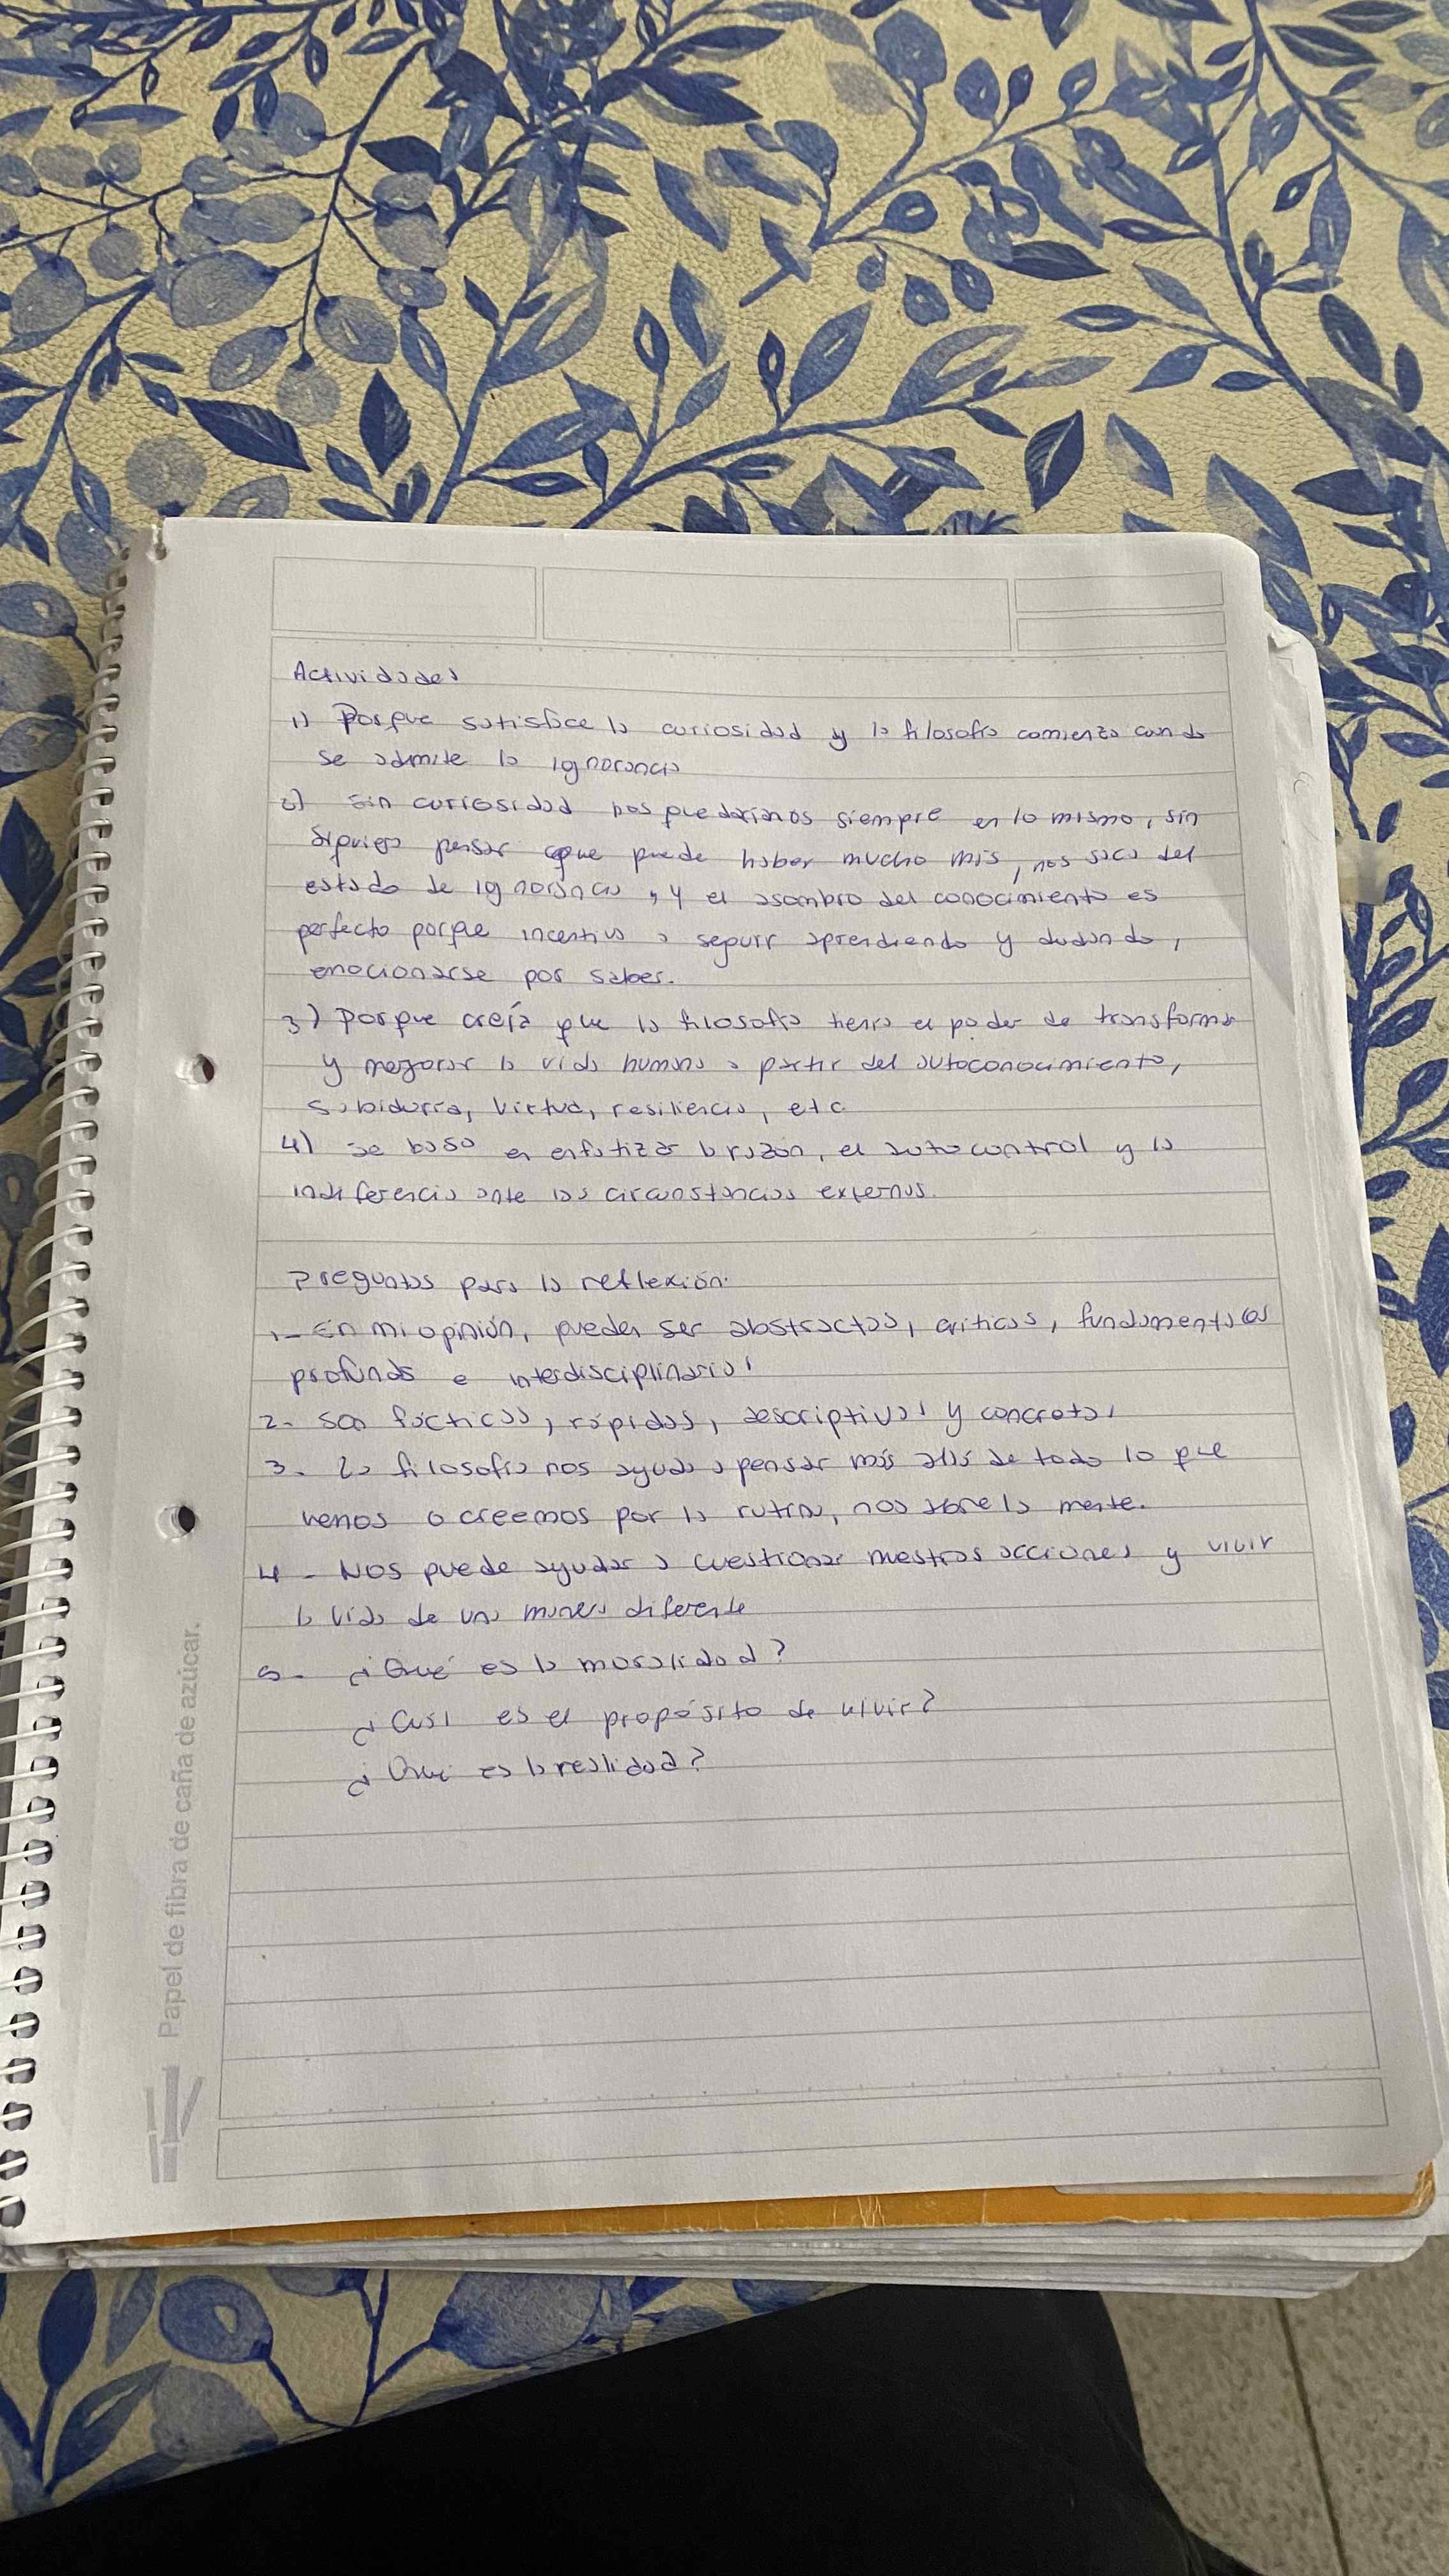 Actividades
1) Porque satisface la curiosidad y la filosofía comienza cuando
se admite la ignorancia
2) Sin curiosidad nos quedaríamos siempre en lo mismo, sin
siquiera pensar que puede haber mucho más, nos saca del
estado de ignorancia, y el asombro del conocimiento es
perfecto porque incentiva a seguir aprendiendo y dudando,
emocionarse por saber.
3) Porque creía que la filosofía tenía el poder de transformar
y mejorar la vida humana a partir del autoconocimiento,
sabiduría, virtud, resiliencia, etc
4) se basa en enfatizar la razón, el autocontrol y la
indiferencia ante las circunstancias externas.
Preguntas para la reflexión:
1- En mi opinión, pueden ser abstractas, críticas, fundamentales
profundas e interdisciplinarias
2- Son fácticas, rápidas, descriptivas y concretas
3- La filosofía nos ayuda a pensar más allá de todo lo que
vemos o creemos por la rutina, nos abre la mente.
4- Nos puede ayudar a cuestionar nuestras acciones y vivir
la vida de una manera diferente
5- ¿Qué es la moralidad?
¿Cuál es el propósito de vivir?
¿Qué es la realidad?
Papel de fibra de caña de azúcar.